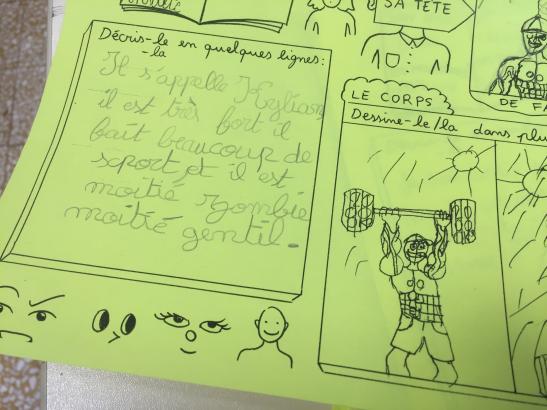 SA TÊTE
Décris-le en quelques lignes:
-la
Il s'appelle Kylian
il est très fort il
fait beaucoup de
soport et il est
moitié zombie
moitié gentil.
DE FA
LE CORPS
Dessine-le/la dans plu